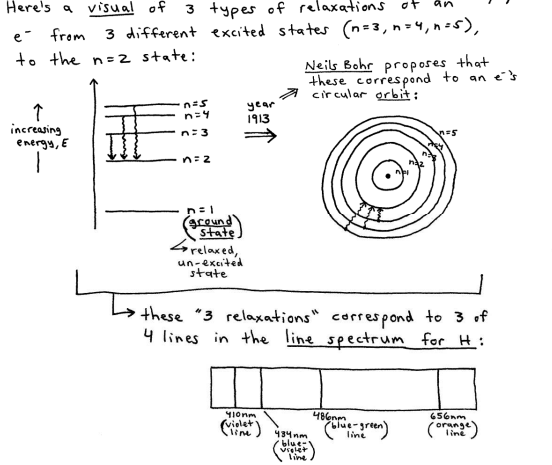 Here's a visual of 3 types of relaxations of an
e⁻ from 3 different excited states (n=3, n=4, n=5),
to the n=2 state:
Neils Bohr proposes that
these correspond to an e⁻'s
circular orbit:
increasing
energy, E
n=5
n=4
n=3
n=2
n=1
(ground
state)
relaxed,
un-excited
state
year
1913
n=5
n=4
n=3
n=2
n=1
these "3 relaxations" correspond to 3 of
4 lines in the line spectrum for H:
410nm
(violet
line)
434nm
(blue-
violet
line)
486nm
(blue-green
line)
656nm
(orange
line)